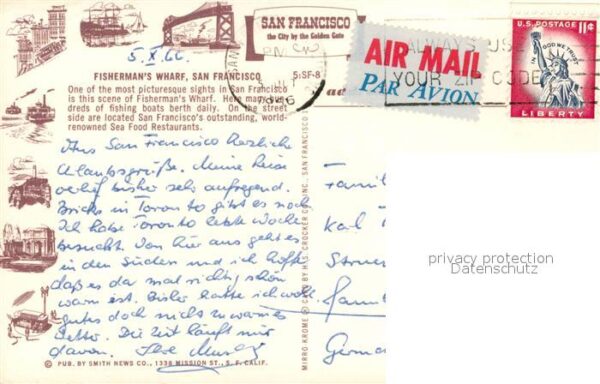 SAN FRANCISCO
the City by the Golden Gate
U.S. POSTAGE 11¢
IN GOD WE TRUST
LIBERTY
AIR MAIL
PAR AVION
ALWAYS USE
YOUR ZIP CODE
PM
1966
5.X.66.
5:SF-8
FISHERMAN'S WHARF, SAN FRANCISCO
One of the most picturesque sights in San Francisco
is this scene of Fisherman's Wharf. Here many
dreds of fishing boats berth daily. On the street
side are located San Francisco's outstanding, world-
renowned Sea Food Restaurants.
Aus San Francisco herzliche
Urlaubsgrüße. Meine Reise
verlief bisher sehr aufregend.
in Toronto gibt es noch
Ich habe Toronto letzte Woche
besucht. Von hier aus geht es
in den Süden und ich hoffe
daß es da mal richtig schön
warm ist. Bisher hatte ich wohl
gutes doch nicht zu warmes
Wetter. Die Zeit läuft mir
davon.
Famil
Karl
Germa
MIRRO-KROME ® CARD BY H.S. CROCKER CO., INC., SAN FRANCISCO
© PUB. BY SMITH NEWS CO., 1338 MISSION ST., S. F. CALIF.
privacy protection
Datenschutz